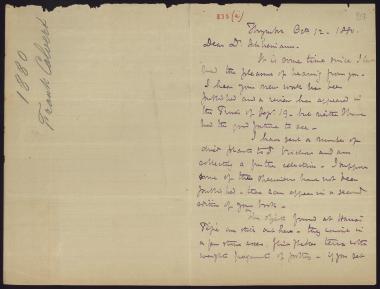 1880
Frank Calvert
Thymbra Oct 12 - 1880.
Dear Dr. Schliemann,
It is some time since I have
had the pleasure of hearing from you.
I hear your new work has been
published and a review has appeared in
the Times of Sepr. 19 - but neither I have
had the good fortune to see -
I have sent a number of
dried plants to Dr Virchow and am
collecting a further selection - I suppose
some of these specimens have not been
published - these can appear in a second
edition of your book.
The objects found at Hanai
Tépé are still out here - they consist in
a few stone axes, flint flakes, terra cotta
weights fragments of pottery - If you get